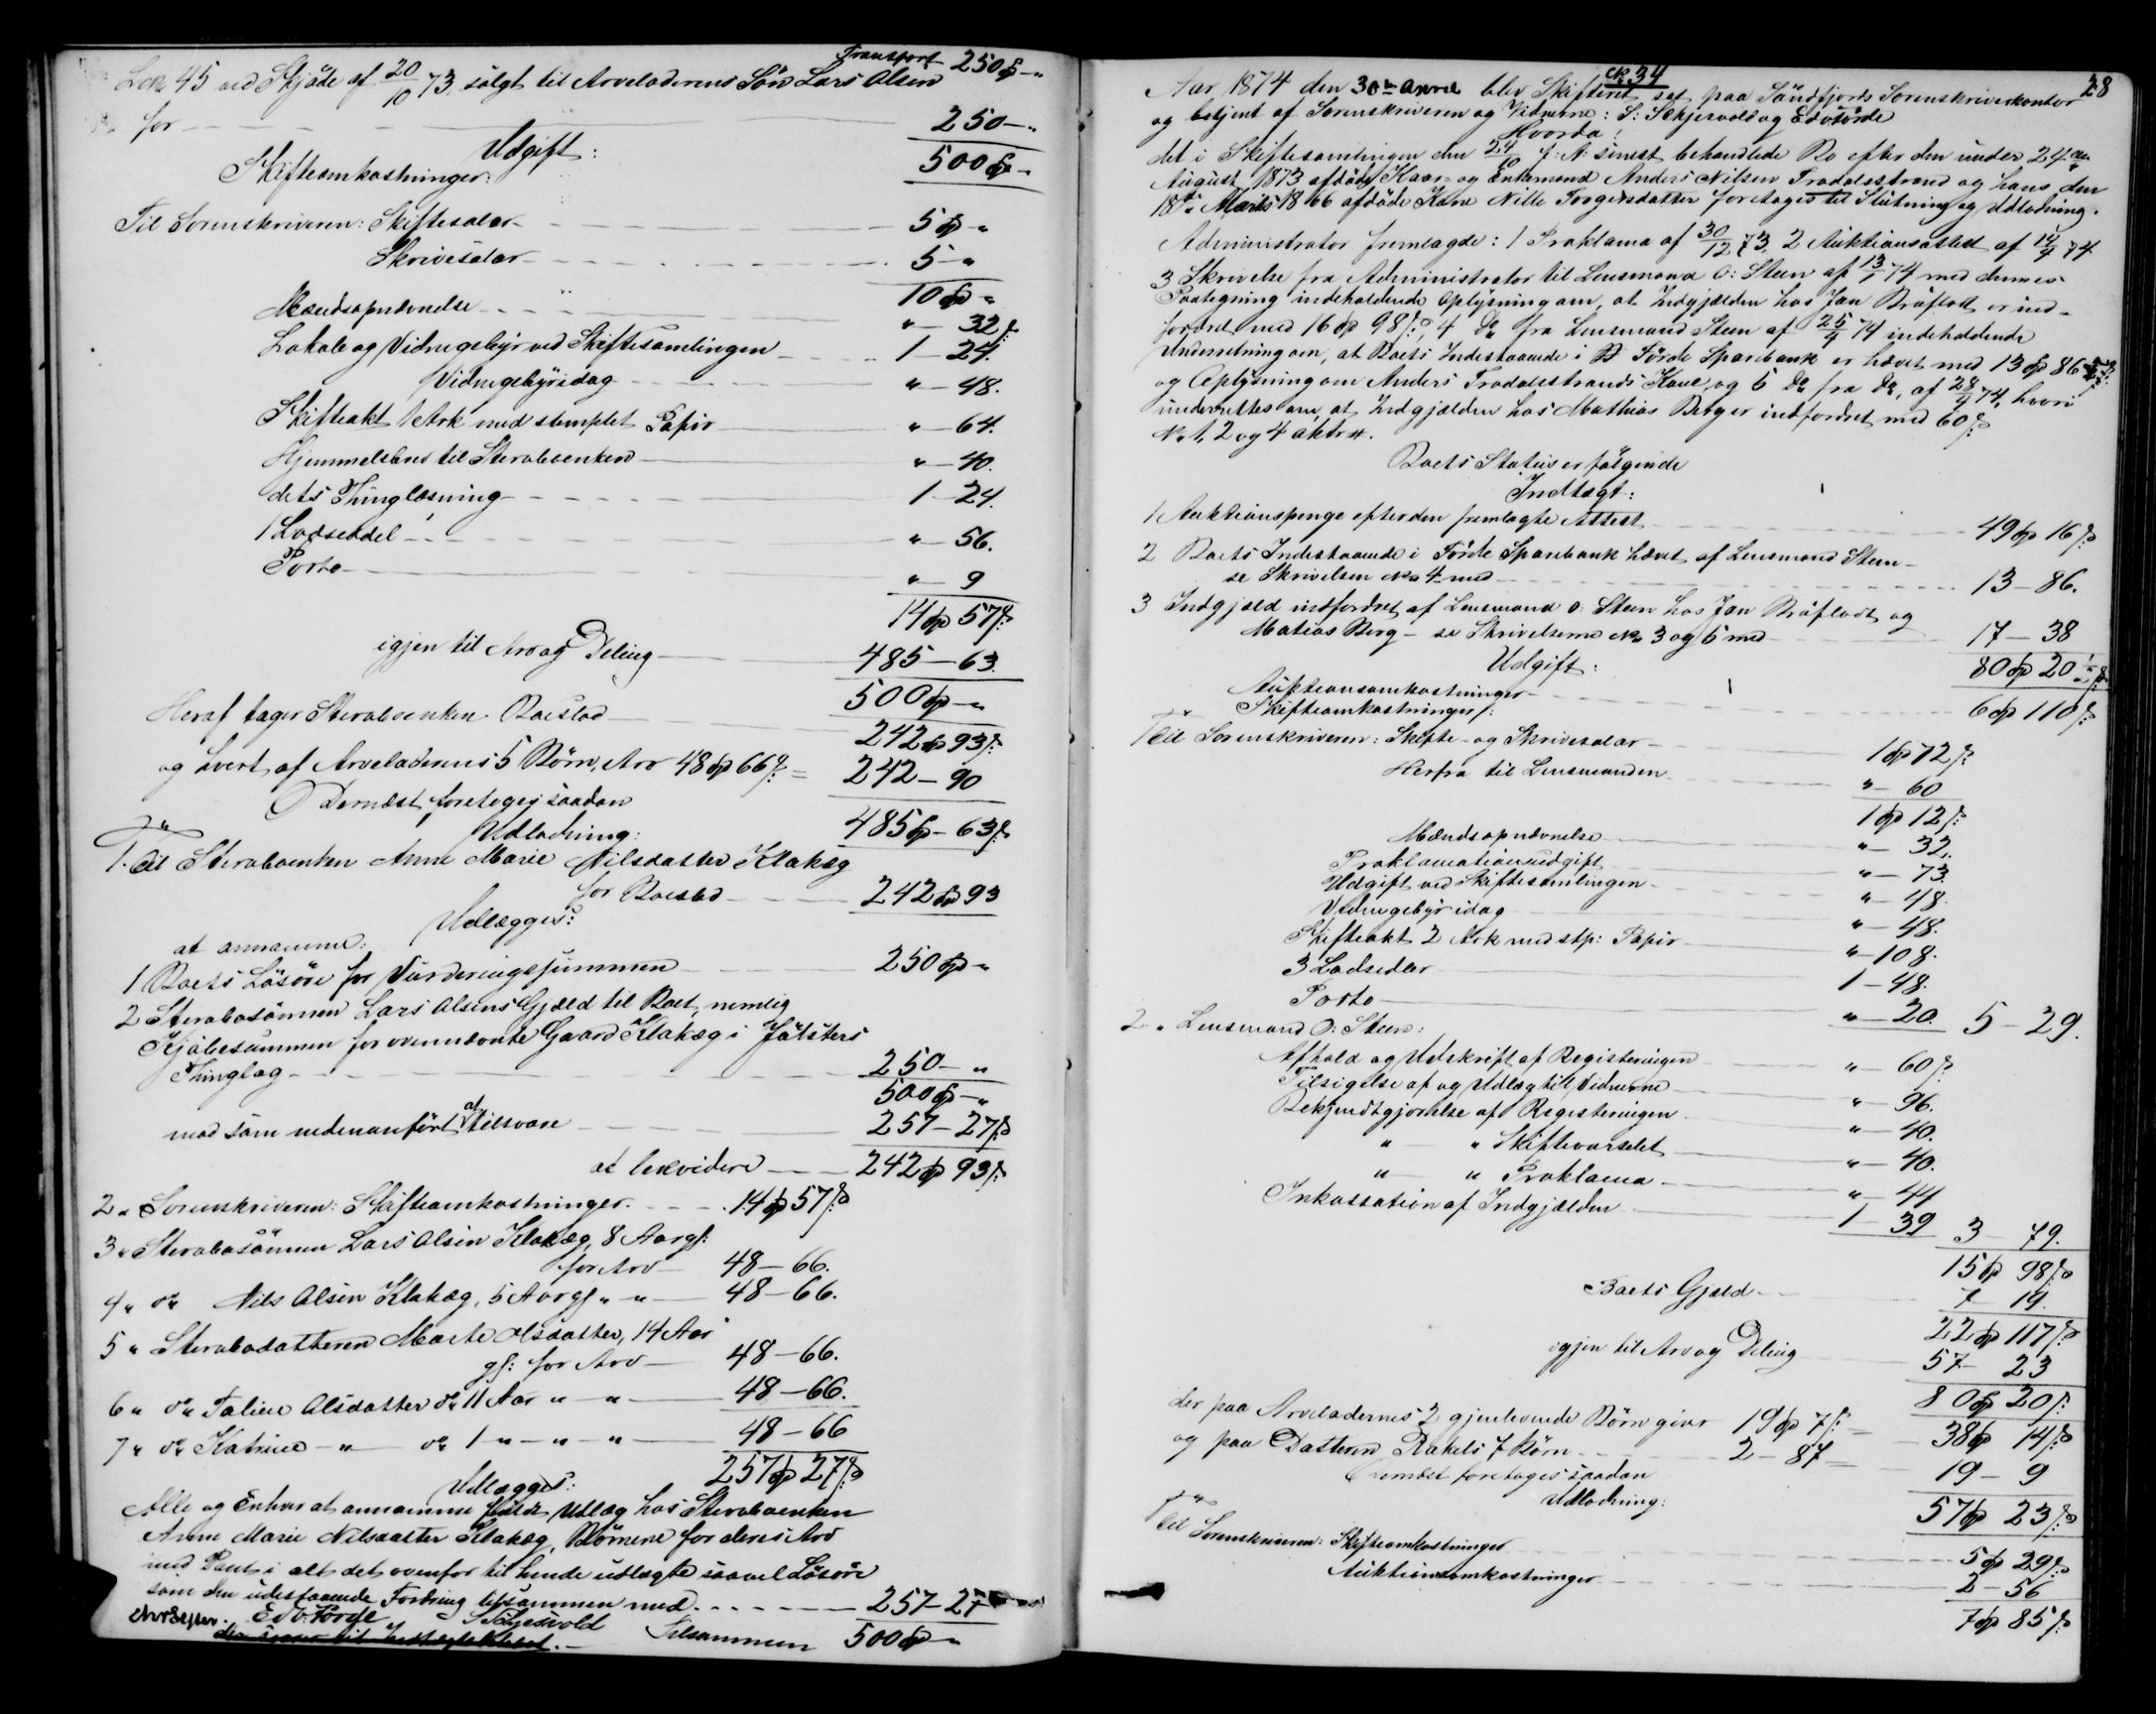 Transport 250 Sp - "
Lno 45 ved Skjøde af 20/10 73 solgt til Arveladerens Søn Lars Olsen
for 250 - "
500 Sp - "
Udgift:
Skifteomkostninger:
Til Sorenskriveren: Skiftesalær 5 Sp - "
Skrivesalær 5 - "
10 Sp - "
Mændsopnævnelse " - 32 ß
Lokale og Vidnegebyr ved Skiftesamlingen 1 - 24.
Vidnegebyr idag " - 48.
Skifteakt 1 Ark med stemplet Papir " - 64.
Hjemmelsbrev til Sterboenken " - 40.
dets Thinglæsning 1 - 24.
1 Lodseddel " - 56.
Porto " - 9
14 Sp 57 ß
igjen til Arv og Deling 485 - 63.
500 Sp - "
Heraf tager Sterboenken Boeslod 242 Sp 93 ß
og hvert af Arveladerens 5 Børn, Arv 48 Sp 66 ß = 242 - 90
485 Sp - 63 ß
Dernæst foretoges saadan
Udlodning:
1. Til Sterboenken Anne Marie Nilsdatter Klakeg
for Boeslod 242 Sp 93
Udlægges:
at annamme:
1 Boets Løsøre for Vurderingssummen 250 Sp "
2 Sterbosønnen Lars Olsens Gjæld til Boet, nemlig
Kjøbesummen for ovennævnte Gaard Klakeg i Jølsters
Thinglag 250 - "
500 Sp - "
mod som nedenanført at tilsvare 257 - 27 ß
at likvidere 242 Sp 93 ß
2 " Sorenskriveren: Skifteomkostninger 14 Sp 57 ß
3 " Sterbosønnen Lars Olsen Klakeg, 8 Aar gl:
for Arv 48 - 66.
4 " do Nils Olsen Klakeg, 5 Aar gl " " 48 - 66.
5 " Sterbodatteren Marte Olsdatter, 14 Aar
gl: for Arv 48 - 66.
6 " do Taline Olsdatter do 11 Aar " " 48 - 66.
7 " do Katrine " do 1 " " " 48 - 66
257 Sp 27 ß
Udlægges:
Alle og Enhver at annamme Udlæg hos Sterboenken
Anne Marie Nilsdatter Klakeg, Børnene for deres Arv
med Pant i alt det ovenfor til hende udlagte saavel Løsøre
som den udestaaende Fordring tilsammen med 257 - 27
Tilsammen 500 Sp "
28
No 34
Aar 1874 den 30te April blev Skifteret sat paa Søndfjords Sorenskriverkontor
og betjent af Sorenskriveren og Vidnerne: S: Schjesvold og Ed v Førde
Hvorda:
det i Skiftesamlingen den 24/10 f: A: senest behandlede Bo efter den under 24de
August 1873 afdøde Kaar- og Enkemand Anders Nilsen Trodalsstrand og hans den
18de Marts 1866 afdøde Kone Nille Torgersdatter foretages til Slutning og Udlodning.
Administrator fremlagde: 1 Proklama af 30/12 73, 2 Auktionsattest af 14/4 74
3 Skrivelse fra Administrator til Lensmand O: Steen af 13/1 74 med dennes
Paategning indeholdende Oplysning om, at Indgjælden hos Jan Bruflodt er ind-
fordret med 16 Sp 98 ß, 4 do fra Lensmand Steen af 25/4 74 indeholdende
Underretning om, at Boets Indestaaende i Førde Sparebank er hævet med 13 Sp 86 ß
og Oplysning om Anders Trodalsstrands Kone, og 5 do fra do, af 28/4 74, hvori
underrettes om, at Indgjælden hos Mathias Berg er indfordret med 60 ß
No 1, 2 og 4 aktr #.
Boets Status er følgende
Indtægt:
1 Auktionspenge efter den fremlagte Attest 49 Sp 16 ß
2 Boets Indestaaende i Førde Sparebank hævet af Lensmand Steen
se Skrivelsen No 4 med 13 - 86.
3 Indgjæld indfordret af Lensmand O: Steen hos Jan Bruflodt og
Matias Berg - se Skrivelserne No 3 og 5 med 17 - 38
80 Sp 20 ß
Udgift:
Auktionsomkostninger 6 Sp 110 ß
Skifteomkostninger:
1 Til Sorenskriveren: Skifte- og Skrivesalær 1 Sp 72 ß
Herfra til Lensmanden " - 60
1 Sp 12 ß
Mændsopnævnelse " - 32.
Proklamationsudgift " - 73.
Udgift ved Skiftesamlingen " - 48.
Vidnegebyr idag " - 48.
Skifteakt 2 Ark med stp: Papir " - 108.
3 Lodsedler 1 - 48.
Porto " - 20. 5 - 29.
2 " Lensmand O: Steen:
Afhold og Udskrift af Registeringen " - 60 ß
Tilsigelse af og Udlæg til Vidnerne " - 96.
Bekjendtgjørelse af Registeringen " - 40.
" " Skiftevarselet " - 40.
" " Proklama " - 44
Inkassation af Indgjælden 1 - 39 3 - 79.
15 Sp 98 ß
Boets Gjæld 7 - 19.
22 Sp 117 ß
igjen til Arv og Deling 57 - 23
80 Sp 20 ß
der paa Arveladernes 2 gjenlevende Børn giver 19 Sp 7 ß = 38 Sp 14 ß
og paa Datteren Rakels 7 Børn 2 - 87 = 19 - 9
57 Sp 23 ß
Dernæst foretages saadan
Udlodning:
Til Sorenskriveren: Skifteomkostninger 5 Sp 29 ß
Auktionsomkostninger 2 - 56
7 Sp 85 ß